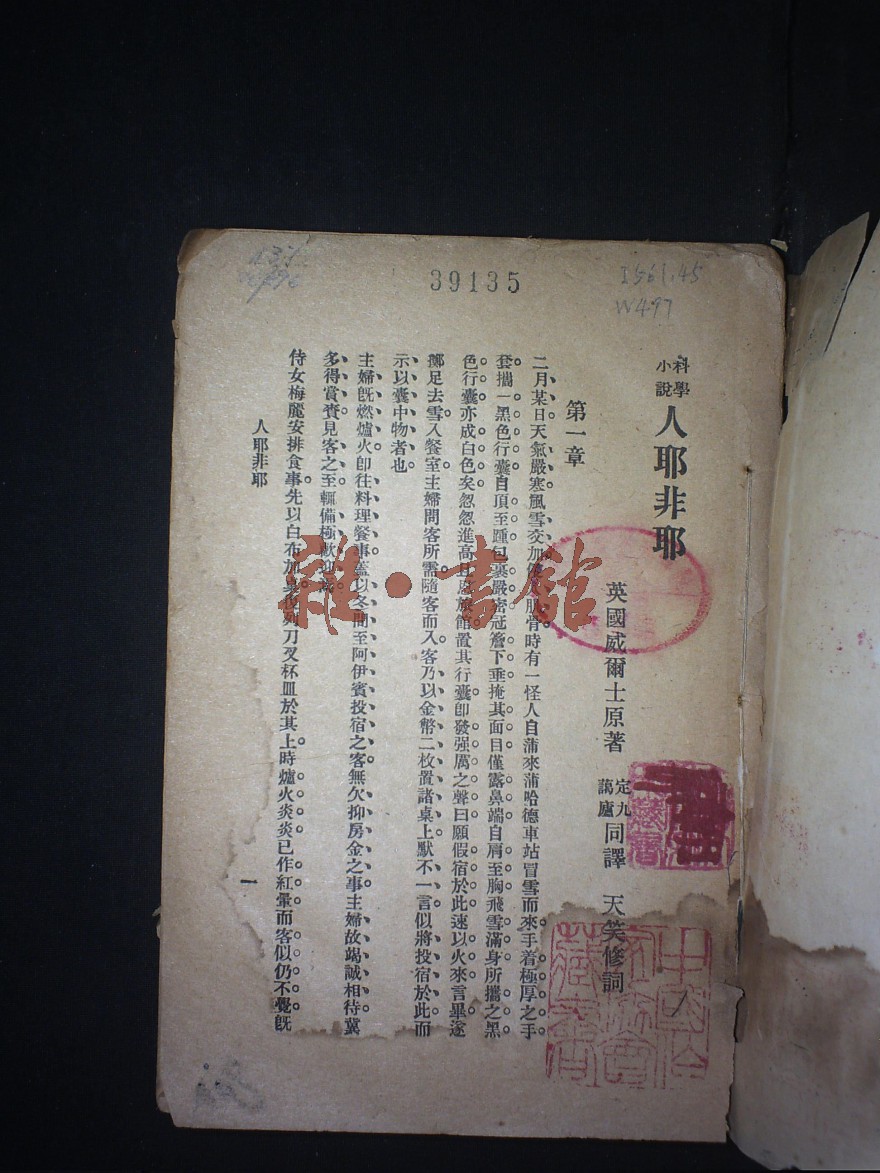 39135
I561.45
W497
科學
小說
人耶非耶
英國威爾士原著
定九
藹廬
同譯 天笑修詞
第一章
二月某日天氣嚴寒風雪交加肌骨時有一怪人自蒲來蒲哈德車站冒雪而來手着極厚之手
套攜一黑色行囊自頂至踵包裹嚴密冠簷下垂掩其面目僅露鼻端自肩至胸飛雪滿身所攜之黑
色行囊亦成白色矣忽忽進高旅館置其行囊卽發强厲之聲曰願假宿於此速以火來言畢遂
擲足去雪入餐室主婦問客所需隨客而入客乃以金幣二枚置諸桌上默不一言似將投宿於此而
示以囊中物者也
主婦旣燃爐火卽往料理餐事蓋以冬間至阿伊賓投宿之客無欠抑房金之事主婦故竭誠相待冀
多得賞賚見客之至輒備極歡迎
侍女梅麗安排食事先以白布加桌後列刀叉杯皿於其上時爐火炎炎已作紅暈而客似仍不覺旣
人耶非耶
一
雜·書館